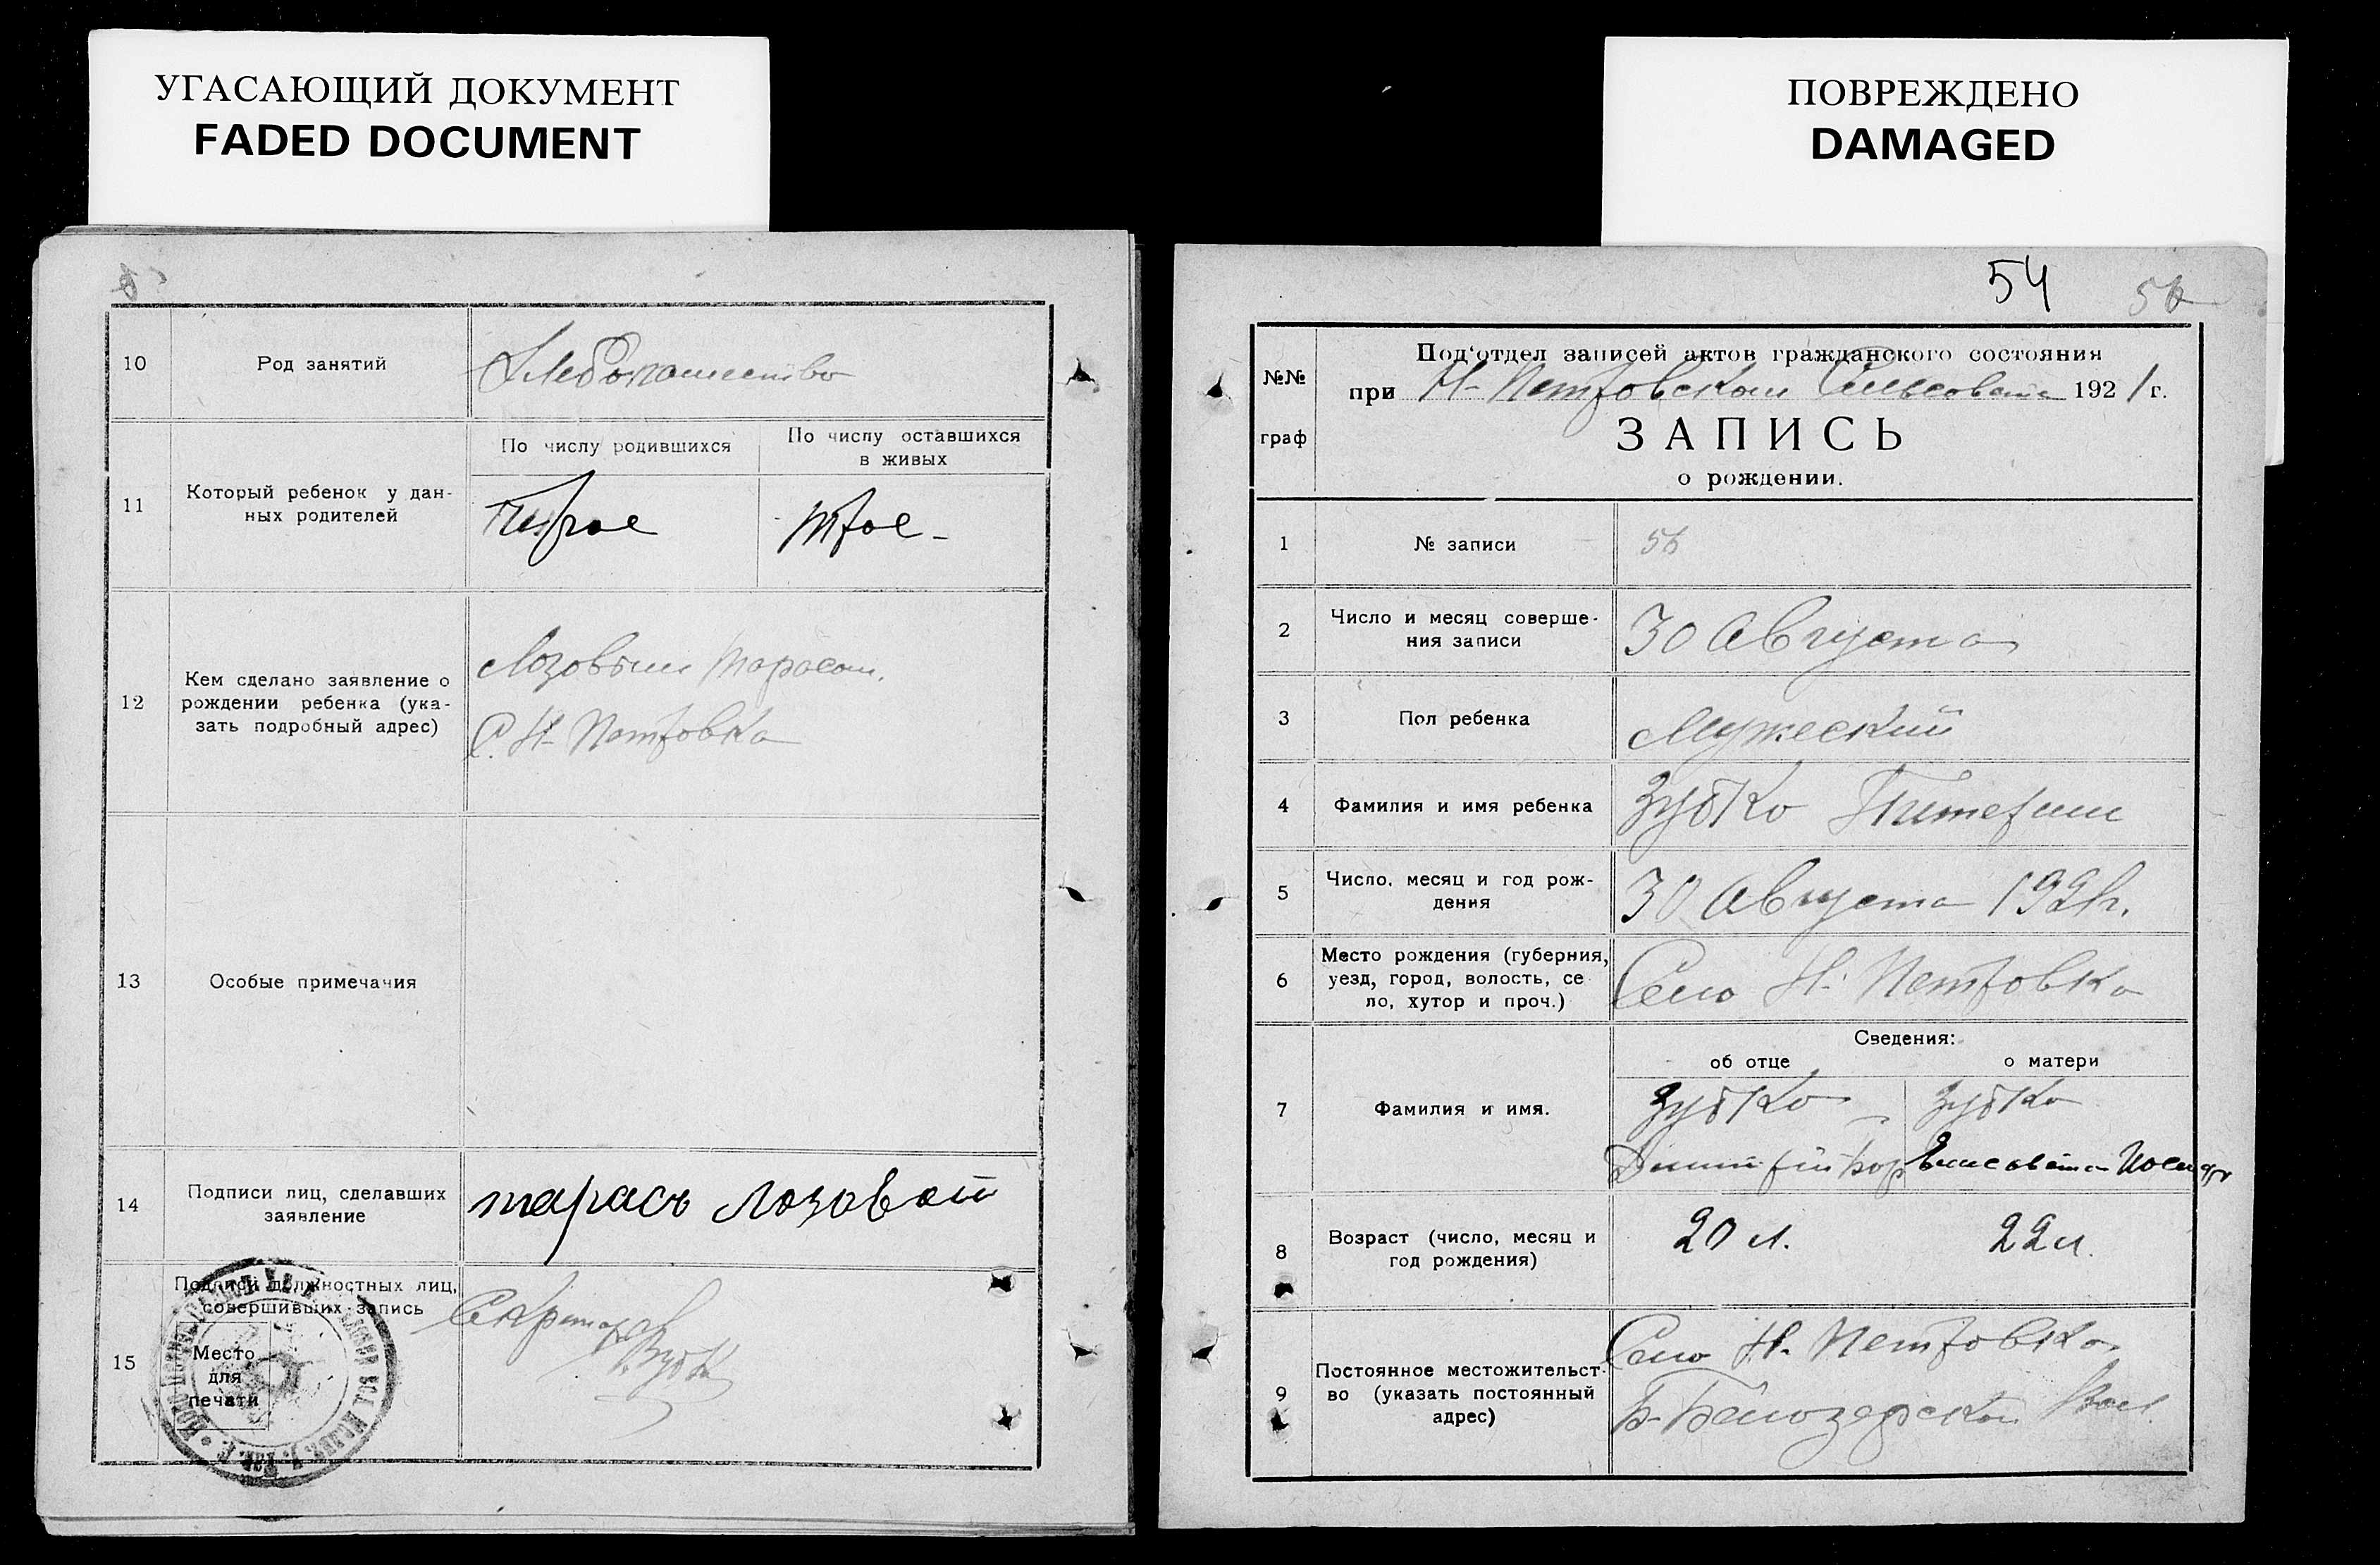 УГАСАЮЩИЙ ДОКУМЕНТ
FADED DOCUMENT
10
Род занятий
Хлебопашество
11
Который ребенок у дан-
ных родителей
По числу родившихся
По числу оставшихся
в живых
трое
12
Кем сделано заявление о
рождении ребенка (ука-
зать подробный адрес)
Лозовым Тарасом.
С. Н-Петровка
13
Особые примечания
14
Подписи лиц, сделавших
заявление
тарасъ лозовой
15
Подписи должностных лиц,
совершивших запись
Место
для
печати
Секретарь
ПОВРЕЖДЕНО
DAMAGED
54
56
№№
граф
Под'отдел записей актов гражданского состояния
при Н-Петровском Сельсовете 1921 г.
ЗАПИСЬ
о рождении.
1
№ записи
56
2
Число и месяц соверше-
ния записи
30 Августа
3
Пол ребенка
Мужеский
4
Фамилия и имя ребенка
Зубко
5
Число, месяц и год рож-
дения
30 Августа 1921г.
6
Место рождения (губерния,
уезд, город, волость, се
ло, хутор и проч.)
Село Н-Петровка
Сведения:
об отце
о матери
7
Фамилия и имя.
Зубко
Зубко
Димитрий
Елисавета
8
Возраст (число, месяц и
год рождения)
20 л.
22 л.
9
Постоянное местожительст-
во (указать постоянный
адрес)
Село Н-Петровка
Б-Белозерской Вол.